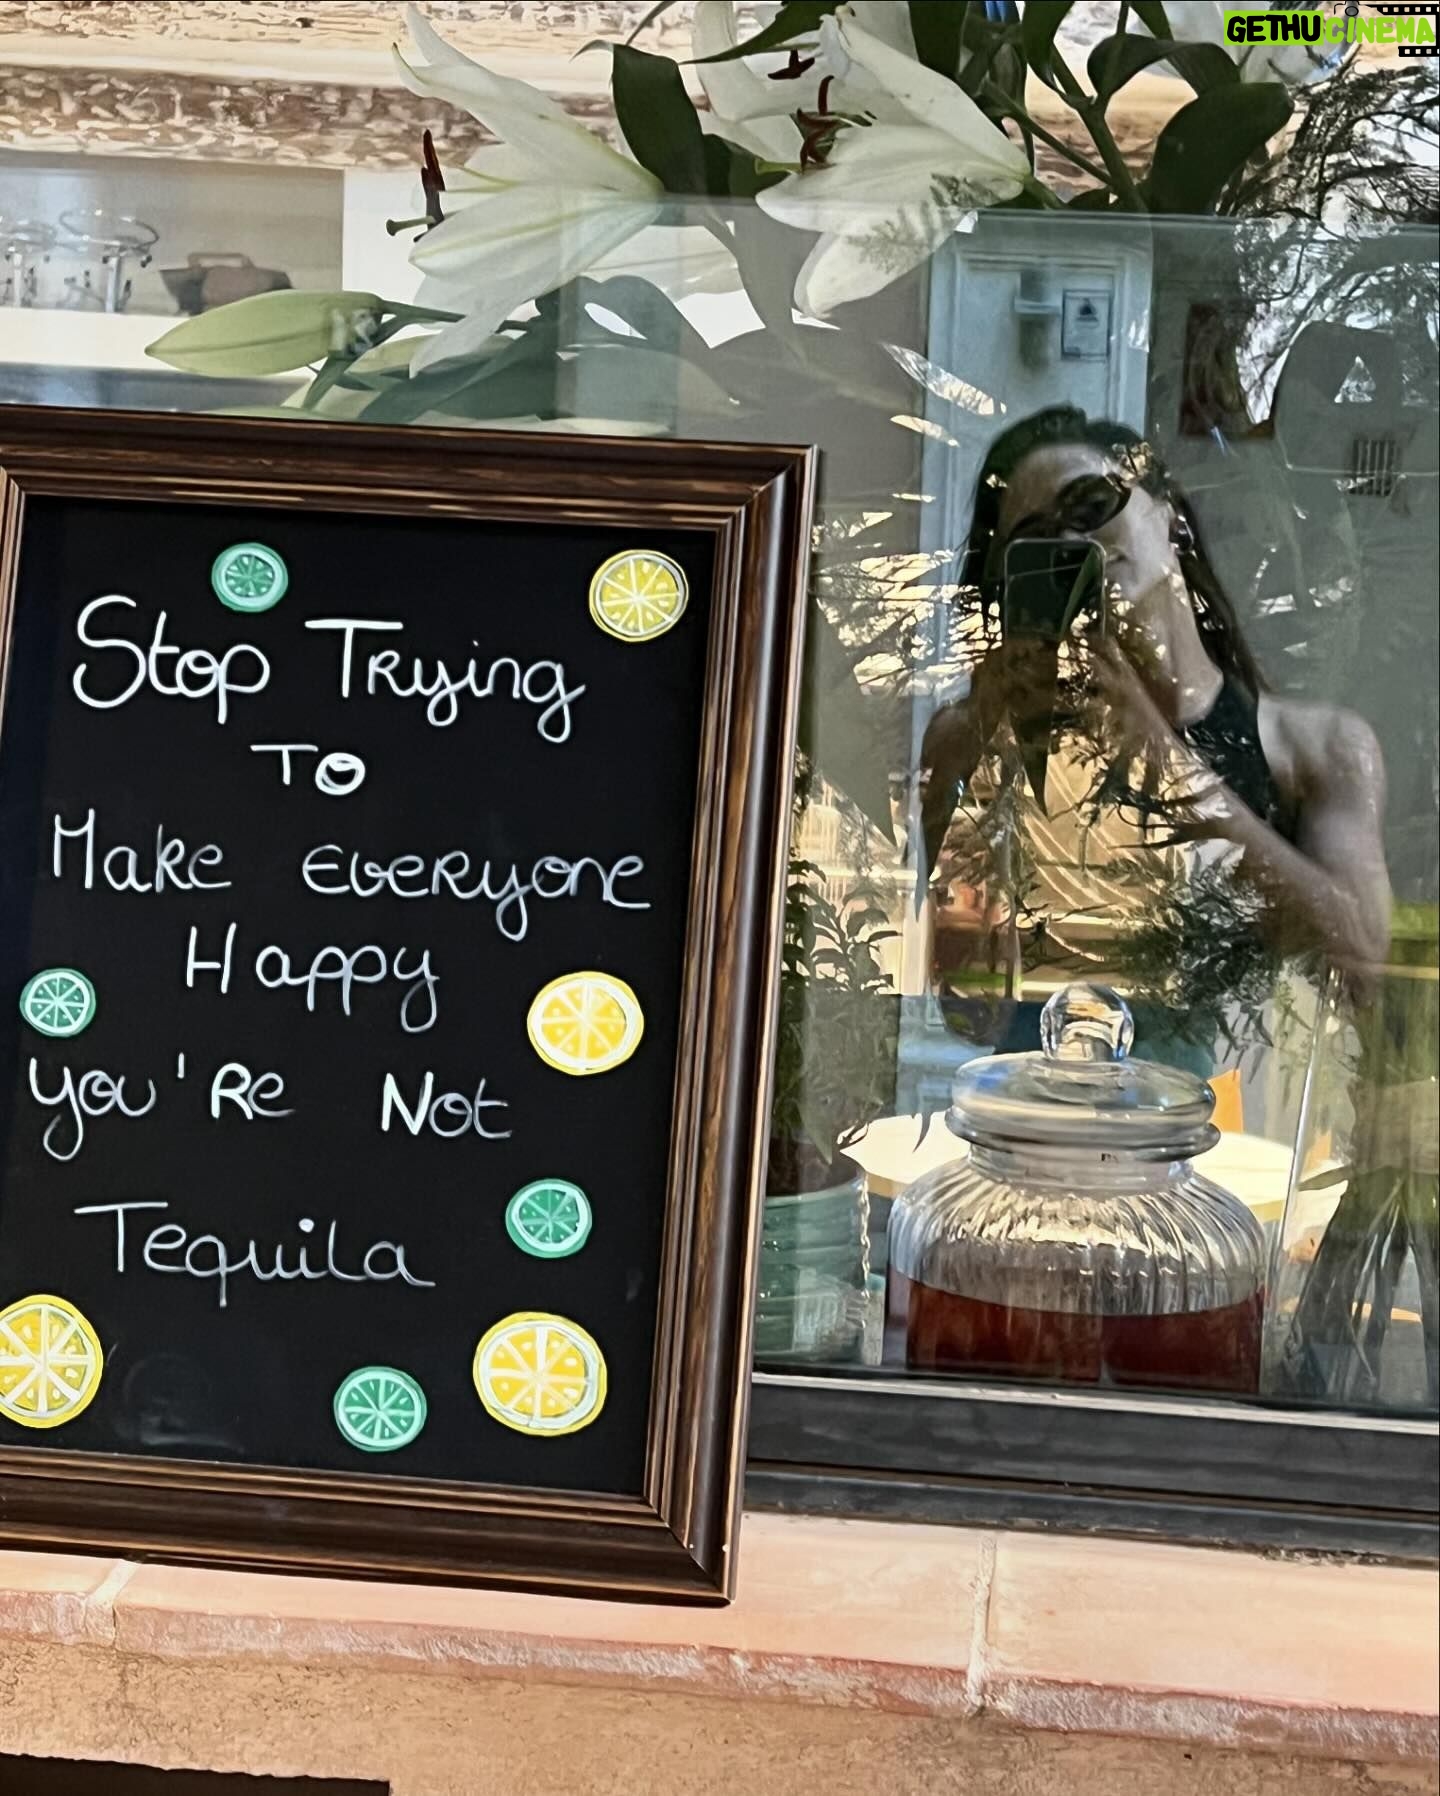 GETHUCINEMA
Stop Trying
To
Make Everyone
Happy
you're Not
Tequila